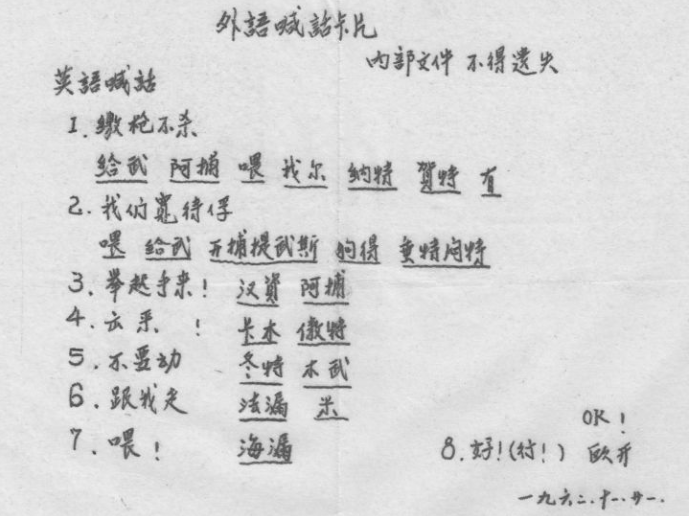 外語喊話卡片
内部文件 不得遺失
英語喊話
1. 繳枪不杀
给武 阿捕 喂 我尔 纳特 賀特 有
2. 我们寬待俘
喂 给武 开捕提武斯 的得 重特闷特
3. 举起手来! 汉資 阿捕
4. 去来 ! 卡木 傲特
5. 不要动 冬特 木武
6. 跟我走 法漏 米
7. 喂! 海漏
OK!
8. 好!(行!) 欧开
一九六二.十一.廿一.